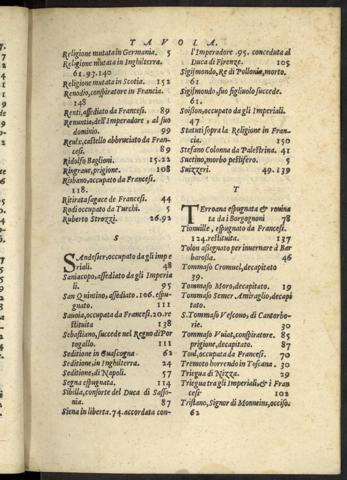 TAVOLA.
Religione mutata in Germania. 5
Religione mutata in Inghilterra.
61.93.140
Religione mutata in Scotia. 152
Renodio, conspiratore in Francia.
148
Renti, assediato da Francesi. 89
Renuntia, dell'Imperadore, al suo
dominio. 99
Reulx, castello abbruciato da Fran-
cesi. 89
Ridolfo Baglioni. 15.22
Ringraue, prigione. 108
Risbano, occupato da Francesi.
118.
Ritirata sagace de Francesi. 44
Rodi occupato da Turchi. 5
Ruberto Strozzi. 26.92
S
SAndesier, occupato da gli impe
riali. 48
Saniacopo, assediato da gli Imperia
li. 95
San Quintino, assediato .106. espu-
gnato. 111
Sauoia, occupata da Francesi. 20. re
stituita 138
Sebastiano, succede nel Regno di Por
togallo. 111
Seditione in Guascogna. 62
Seditione, in Inghilterra. 24
Seditione, di Napoli. 57
Segna espugnata. 114
Sibilla, consorte del Duca di Sasso-
nia. 87
Siena in liberta. 74. accordata con-
l'Imperadore .95. conceduta al
Duca di Firenze. 105
Sigismondo, Re di Pollonia, morto.
61
Sigismondo, suo figliuolo succede.
61.
Soisson, occupato da gli Imperiali.
41
Statuti sopra la Religione in Fran-
cia. 150
Stefano Colonna da Palestrina. 41
Suetino, morbo pestifero. 5
Suizzeri. 49.139
T
TEroana espugnata & rouina
ta da i Borgognoni 78
Tionuille, espugnato da Francesi.
124. restituita. 137
Tolon assegnato per inuernare à Bar
barossa. 46
Tommaso Cromuel, decapitato
39.
Tommaso Moro, decapitato. 19
Tommaso Semer Amiraglio, decapi
tato.
S. Tommaso Vescouo, di Cantorbe-
rie. 30
Tommaso Vuiat, conspiratore. 85
prigione, decapitato. 87
Toul, occupata da Francesi. 70
Tremoto horrendo in Toscana. 30
Triegua di Nizza. 29
Triegua tra gli Imperiali, & i Fran
cesi 102
Tristano, Signor di Monneins, occiso.
62